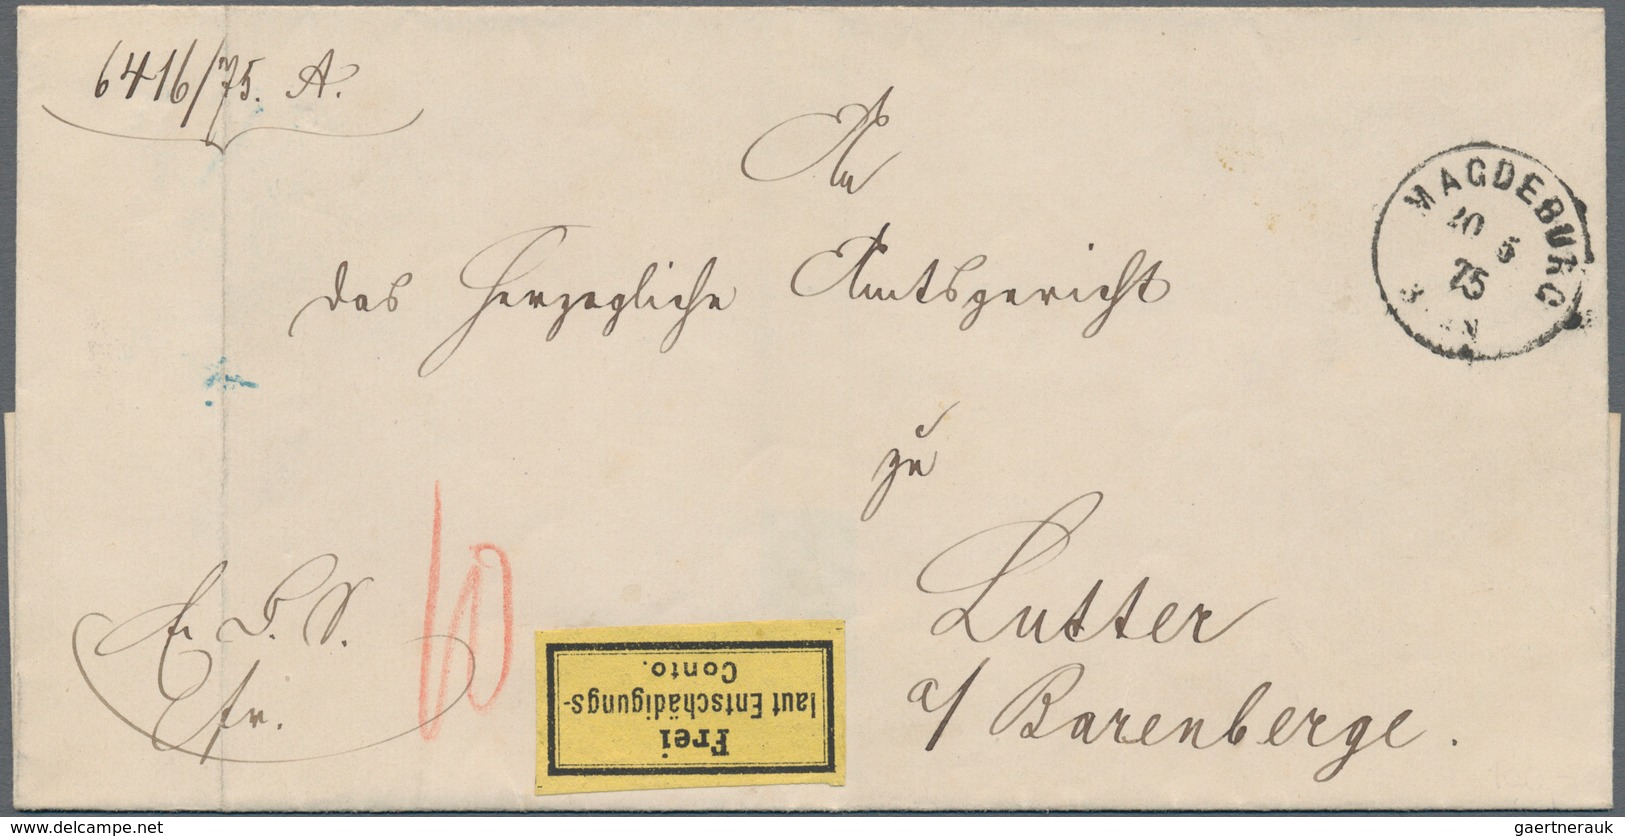 6416/75. A.
An
das Herzogliche Amtsgericht
zu
Lutter
a/ Barenberge.
MAGDEBURG
20 5
75
10
E. B. S.
fr.
Frei
laut Entschädigungs-
Conto.
gaertnerauk